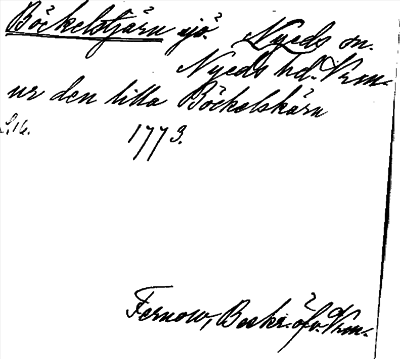 Böckelstjärn sjö. Nyeds sn.
Nyeds hd. Vrm.
ur den lilla Böckelskärn
S. 16. 1773.
Fernow, Beskr. öfv. Vrm.